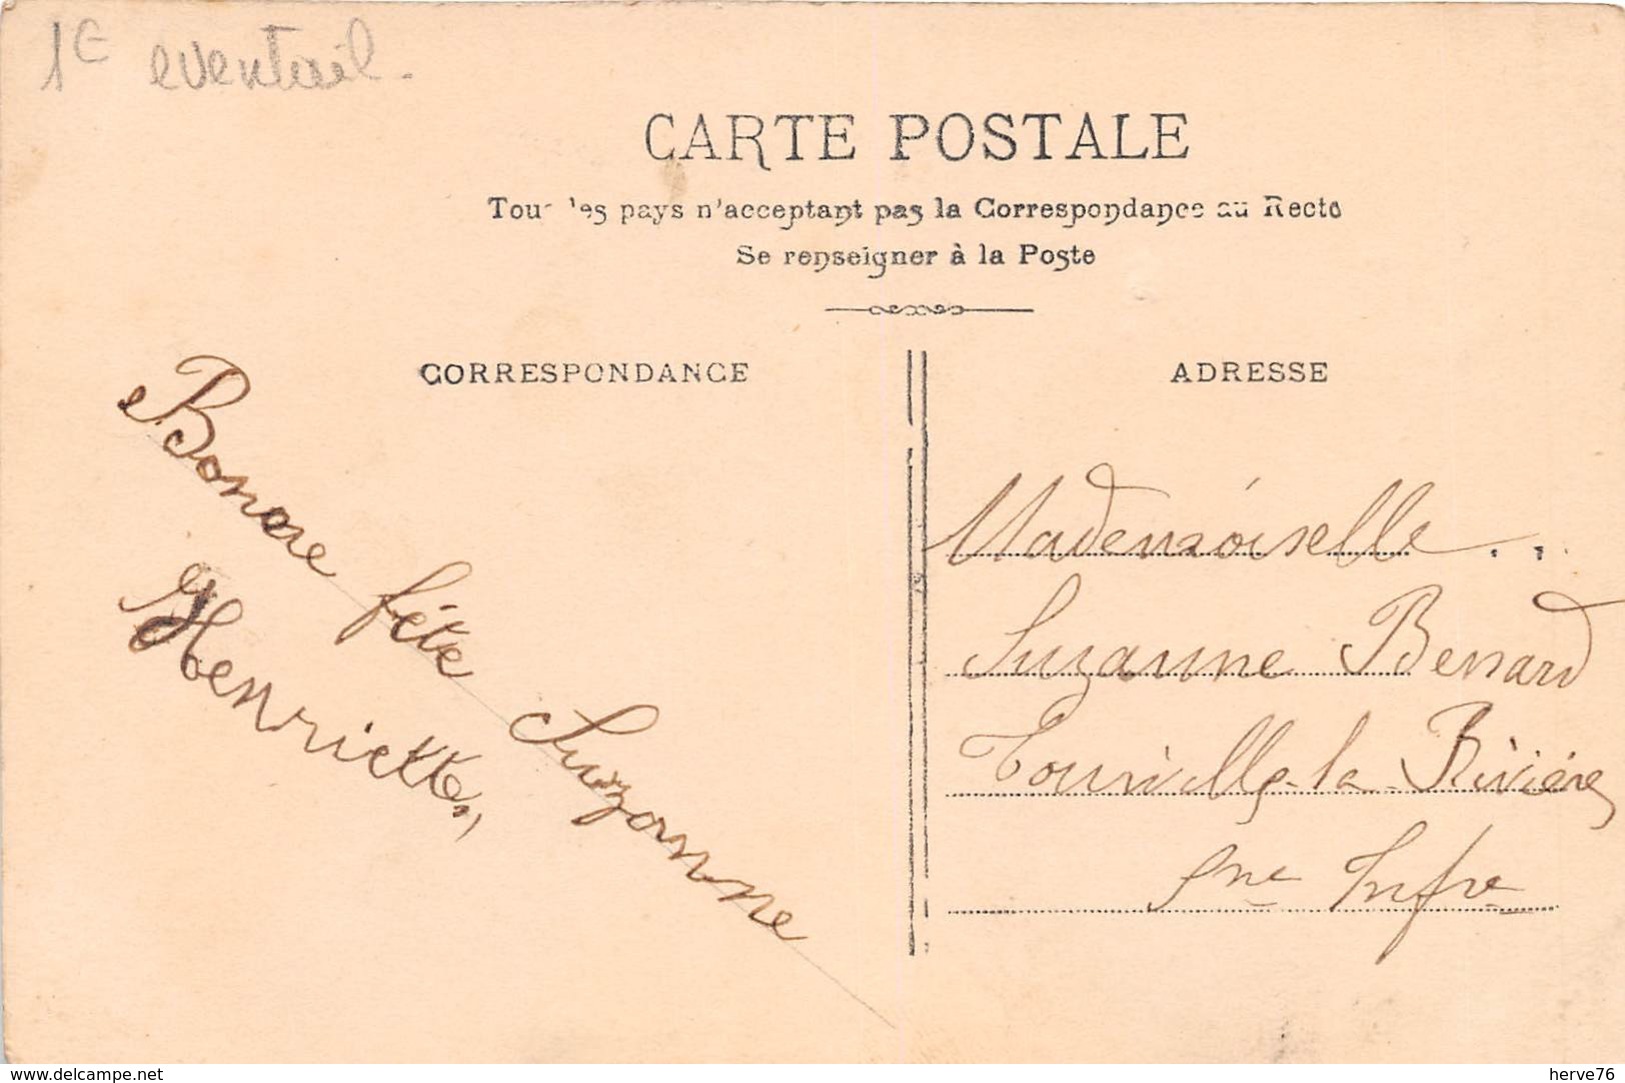 1€ eventail.
CARTE POSTALE
Tous les pays n'acceptant pas la Correspondance au Recto
Se renseigner à la Poste
CORRESPONDANCE
Bonne fête Suzanne
Henriette,
ADRESSE
Mademoiselle..
Suzanne Benard
Tourville-la-Rivière
Sne Infre
www.delcampe.net
herve76